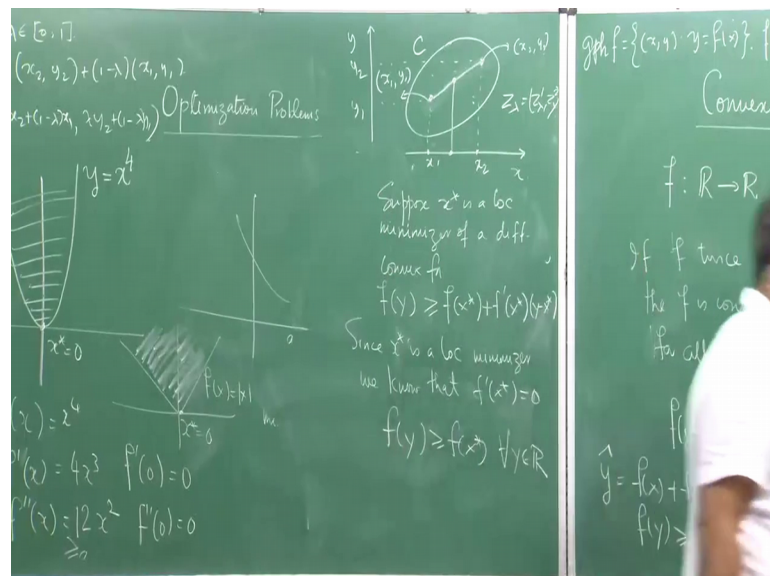 λ ∈ [0, 1]
(x₂, y₂) + (1-λ)(x₁, y₁)
x₂+(1-λ)x₁, λy₂+(1-λ)y₁)
Optimization Problems
y = x⁴
x* = 0
f(x) = |x|
x* = 0
(x) = x⁴
f'(x) = 4x³ f'(0) = 0
f''(x) = 12x² f''(0) = 0
≥0
y
C
(x₂, y₂)
y₂
(x₁, y₁)
y₁
x₁
x₂
x
Suppose x* is a loc
minimizer of a diff.
Convex fn
f(y) ≥ f(x*) + f'(x*)(y-x*)
Since x* is a loc minimizer
we know that f'(x*) = 0
f(y) ≥ f(x*) ∀y∈ℝ
gph f = {(x,y) : y = f(x)}.
Convex
f : ℝ → ℝ
If f twice
the f is con
for all
f(
ŷ = f(x) +
f(y) ≥